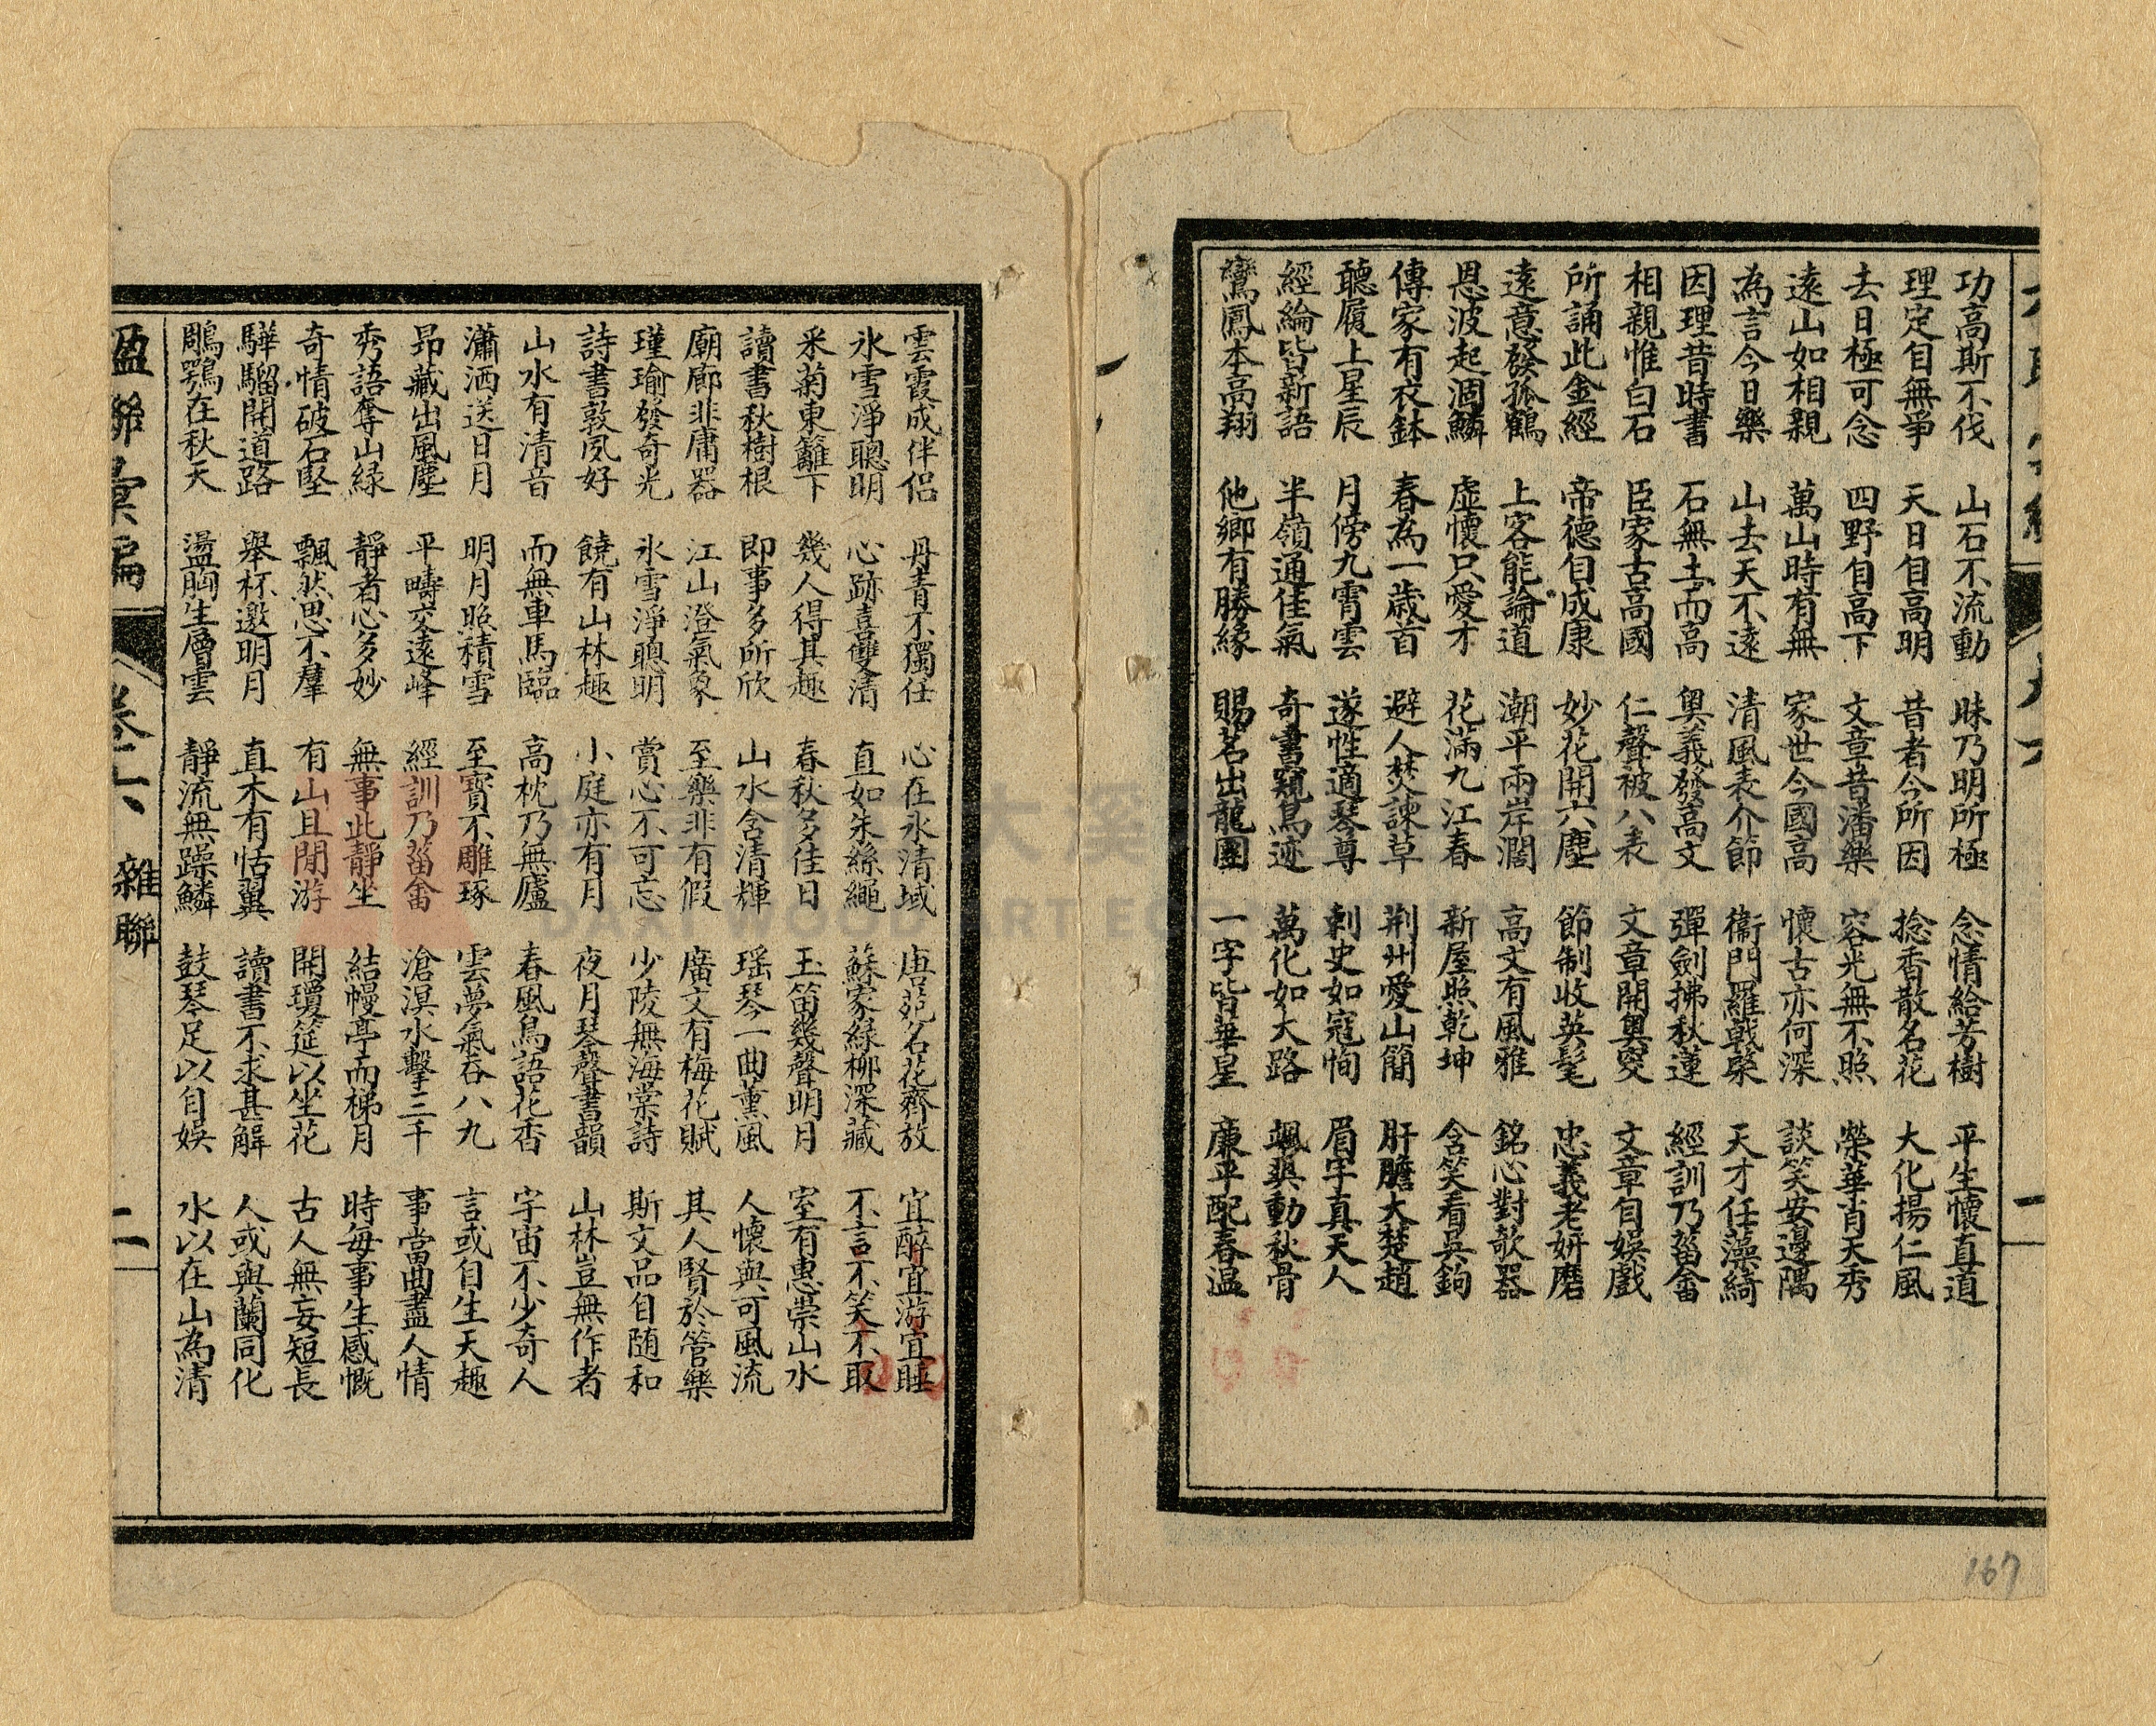 功高斯不伐 山石不流動 昧乃明所極 念情給芳樹 平生懷直道
理定自無爭 天日自高明 昔者今所因 捻香散名花 大化揚仁風
去日極可念 四野自高下 文章昔潘樂 容光無不照 榮華肖天秀
遠山如相親 萬山時有無 家世今國高 懷古亦何深 談笑安邊隅
為言今日樂 山去天不遠 清風表介節 衞門羅戟棨 天才任藻綺
因理昔時書 石無土而高 奧義發高文 彈劍拂秋蓮 經訓乃菑畬
相親惟白石 臣家古高國 仁聲被八表 文章開奧窔 文章自娛戲
所誦此金經 帝德自成康 妙花開六塵 節制收英髦 忠義老妍磨
遠意發孤鶴 上客能論道 潮平兩岸濶 高文有風雅 銘心對欹器
恩波起涸鱗 虛懷只愛才 花滿九江春 新屋照乾坤 含笑看吳鉤
傳家有衣鉢 春為一歲首 避人焚諫草 荆州愛山簡 肝膽大楚趙
聽履上星辰 月傍九霄雲 遂性適琴尊 刺史如寇恂 眉宇真天人
經綸皆新語 半嶺通佳氣 奇書窺鳥迹 萬化如大路 颯爽動秋骨
鸞鳳本高翔 他鄉有勝緣 賜茗出龍團 一字皆華星 廉平配春温
雲霞成伴侶 丹青不獨任 心在氷清域 唐苑名花齊放 宜醉宜游宜睡
氷雪淨聰明 心跡喜雙清 直如朱絲繩 蘇家綠柳深藏 不言不笑不取
采菊東籬下 幾人得其趣 春秋多佳日 玉笛幾聲明月 室有惠崇山水
讀書秋樹根 即事多所欣 山水含清輝 瑶琴一曲薰風 人懷與可風流
廟廊非庸器 江山澄氣象 至樂非有假 廣文有梅花賦 其人賢於管樂
瑾瑜發奇光 氷雪淨聰明 賞心不可忘 少陵無海棠詩 斯文品自随和
詩書敦夙好 饒有山林趣 小庭亦有月 夜月琴聲書韻 山林豈無作者
山水有清音 而無車馬臨 高枕乃無廬 春風鳥語花香 宇宙不少奇人
瀟洒送日月 明月照積雪 至寳不雕琢 雲夢氣吞八九 言或自生天趣
昂藏出風塵 平疇交遠峰 經訓乃菑畬 滄溟水擊三千 事當曲盡人情
秀語奪山緑 靜者心多妙 無事此靜坐 結幔亭而梯月 時每事生感慨
奇情破石堅 飄然思不羣 有山且閒游 開瓊筵以坐花 古人無妄短長
驊騮開道路 舉杯邀明月 直木有恬翼 讀書不求甚解 人或與蘭同化
鵰鶚在秋天 盪胸生層雲 靜流無躁鱗 鼓琴足以自娛 水以在山為清
楹聯彙編 卷六、 雜聯 二
167